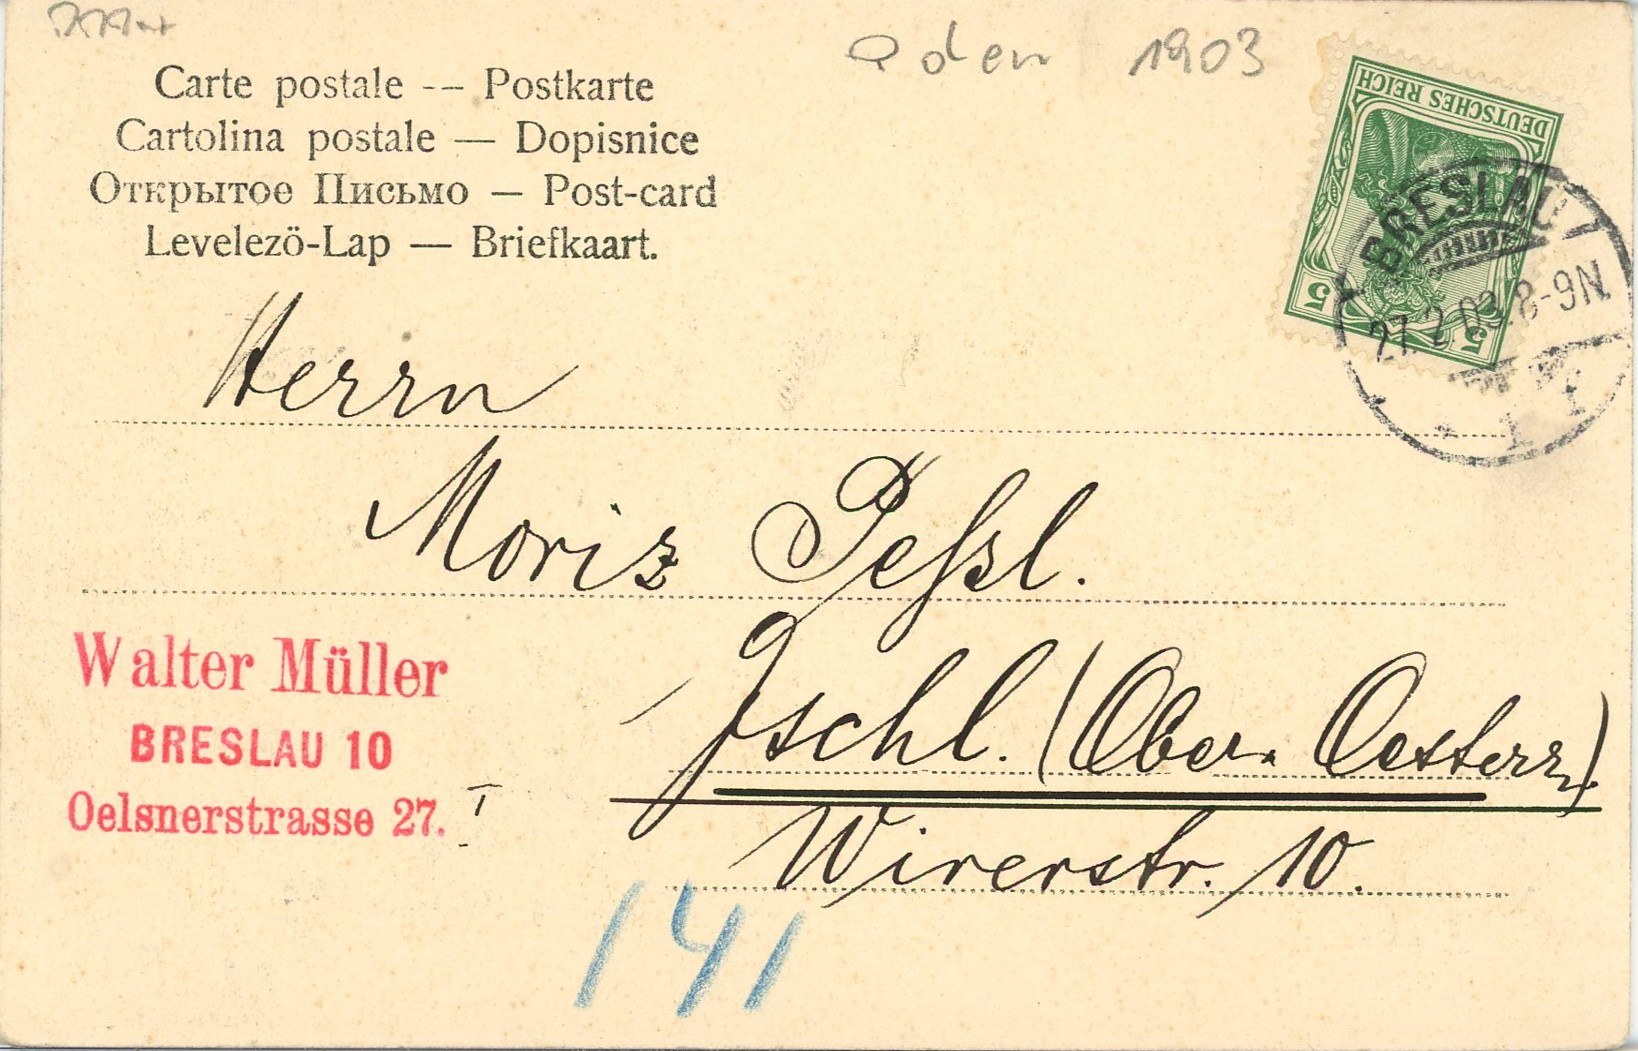 1903
Carte postale -- Postkarte
Cartolina postale — Dopisnice
Открытое Письмо — Post-card
Levelezö-Lap — Briefkaart.
DEUTSCHES REICH
5 5
BRESLAU
27.2.03.8-9N.
Herrn
Moriz Peßl.
Ischl. (Ober. Oesterr.)
Wirerstr. 10.
Walter Müller
BRESLAU 10
Oelsnerstrasse 27. I
141